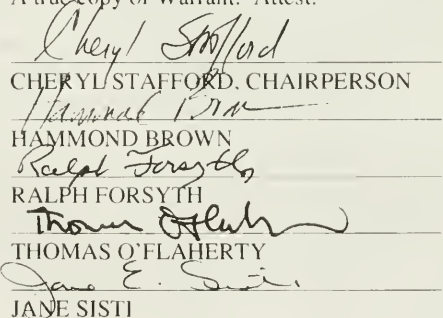 A true copy of Warrant. Attest:
Cheryl Stafford
CHERYL STAFFORD, CHAIRPERSON
Hammond Brown
HAMMOND BROWN
Ralph Forsyth
RALPH FORSYTH
Thomas O'Flaherty
THOMAS O'FLAHERTY
Jane E. Sisti
JANE SISTI